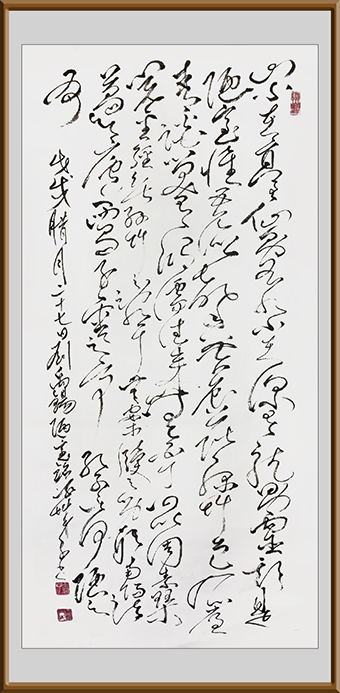 山不在高有仙則名水不在深有龍則靈斯是
陋室惟吾德馨苔痕上階綠草色入簾
青談笑有鴻儒往來無白丁可以調素琴
閱金經無絲竹之亂耳無案牘之勞形南陽諸
葛廬西蜀子雲亭孔子云何陋之
有
戊戌腊月二十七日劉禹錫陋室銘